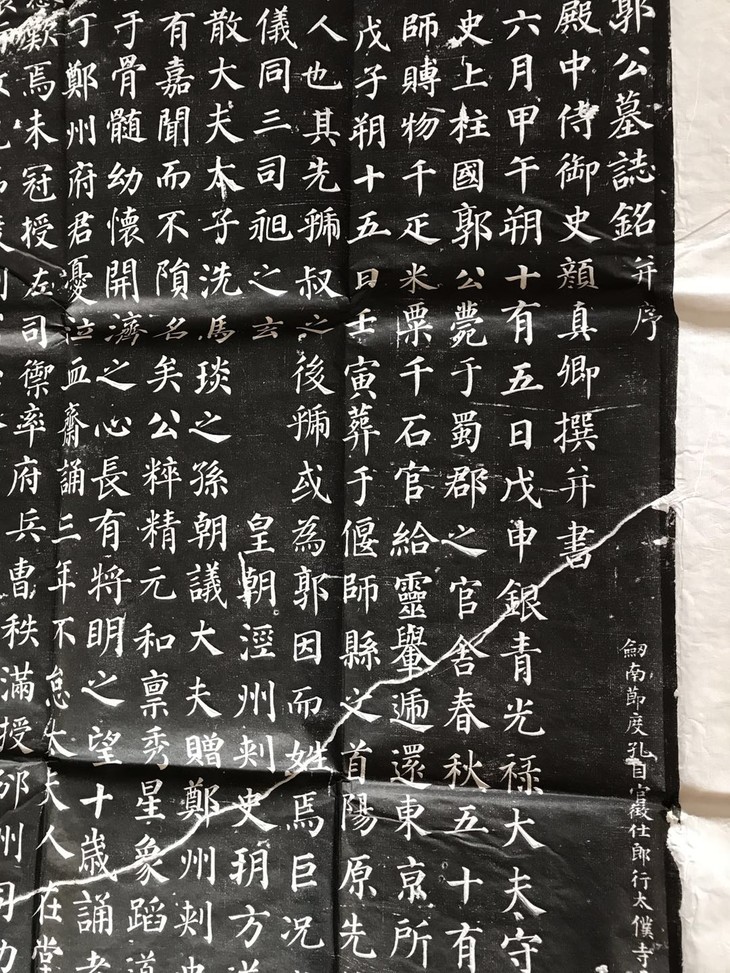 郭公墓誌銘并序
劒南節度孔目官徵仕郎行太僕寺
殿中侍御史顏真卿撰并書
六月甲午朔十有五日戊申銀青光祿大夫守
史上柱國郭公薨于蜀郡之官舍春秋五十有
師賻物千疋米粟千石官給靈轝遞還東京所
戊子朔十五日壬寅葬于偃師縣之首陽原先
人也其先虢叔之後虢或為郭因而姓焉巨況
儀同三司昶之玄 皇朝涇州刺史玥方道
散大夫太子洗馬琰之孫朝議大夫贈鄭州刺史
有嘉聞而不隕名矣公粹精元和稟秀星象蹈道
于骨髓幼懷開濟之心長有將明之望十歲誦老
丁鄭州府君憂泣血齋誦三年不怠太夫人在堂
歎焉未冠授左司禦率府兵曹秩滿授邠州司功